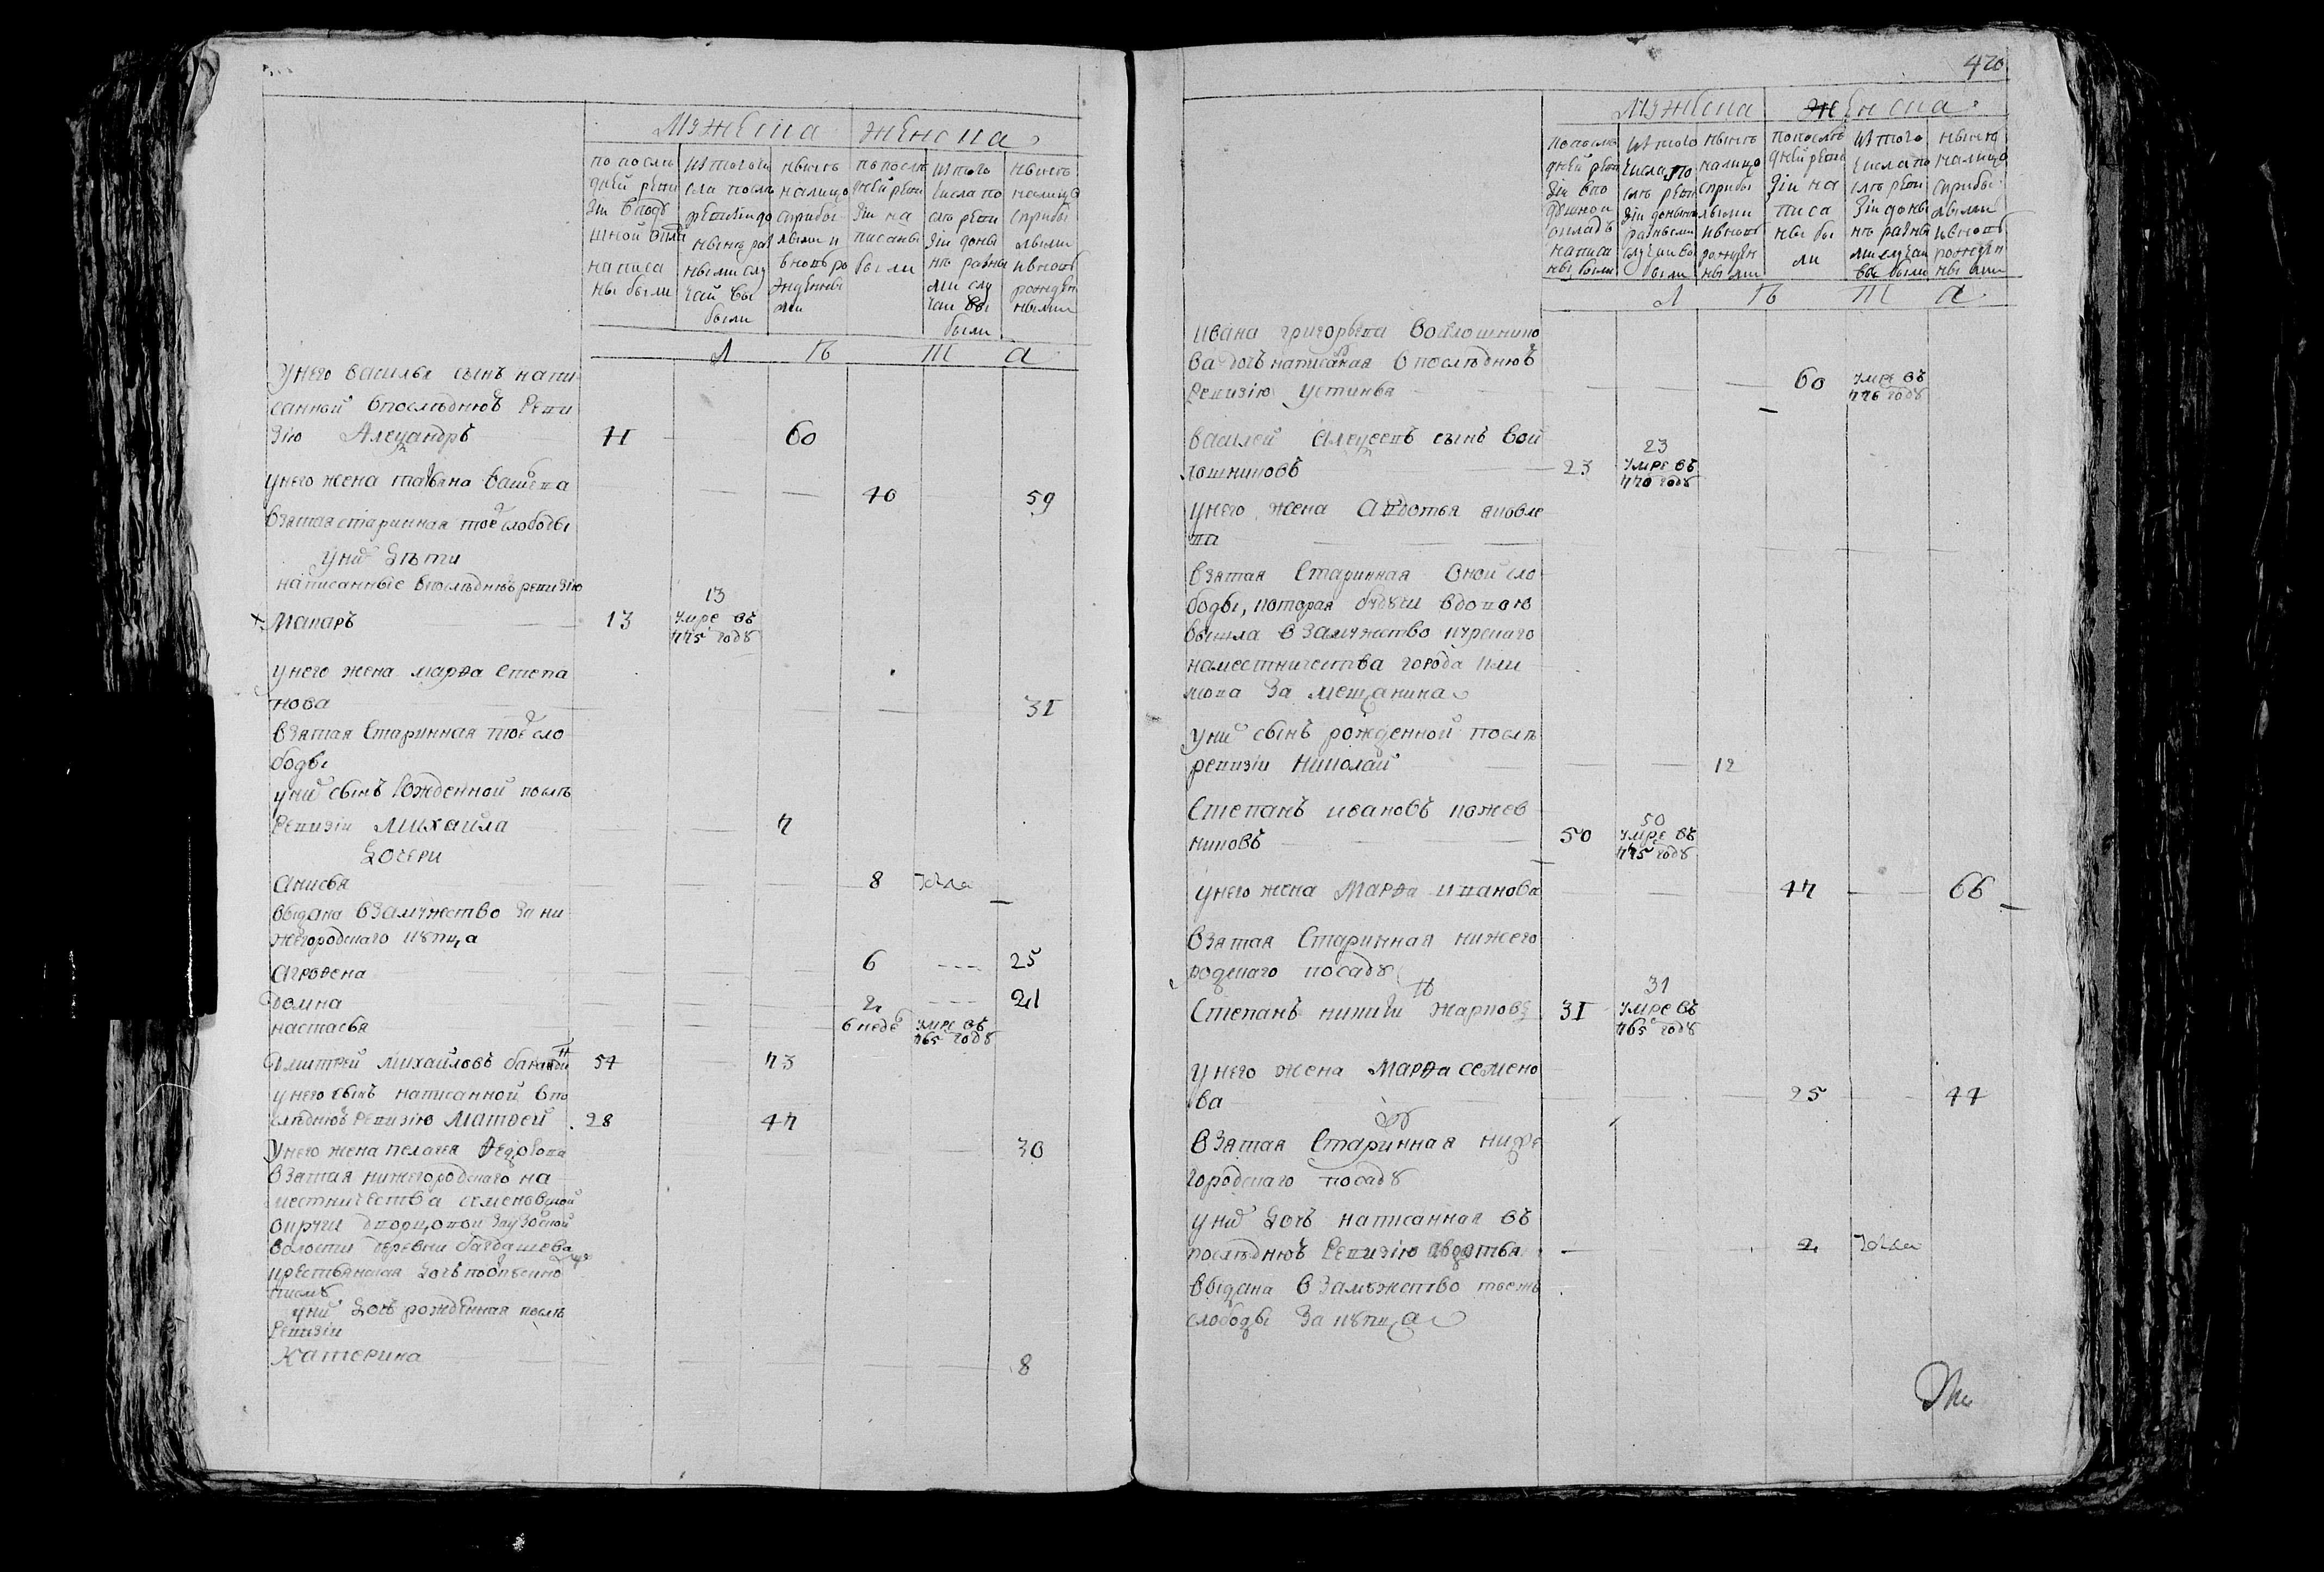 мужеска женска
по после
дней реви
зіи в поду
шной окла
написа
ны были
из того чи
сла после
ревизіи до
ныне раз
ными слу
чаи вы
были
ныне
налицо
с прибы
лыми и
вновь ро
жденны
ми
по после
дней реви
зіи на
писаны
были
из того
числа по
сле реви
зіи до ны
не разны
ми слу
чаи вы
были
ныне
налицо
с прибы
лыми
и вновь
рожден
ными
л ѣ т а
у него василья сынъ напи
санной в последнюю реви
зію Алеѯандръ 41 60
у него жена татьяна васильева 40 59
взятая старинная тоей слободы
у них дѣти
написанные в последнюю ревизію
Макаръ 13 13
умре въ
775 году
у него жена марѳа степа
нова 31
взятая старинная тоей сло
боды
у них сынъ рожденной послѣ
ревизіи Михаила 7
дочери
Анисья 8
выдана в замужество за ни
жегородскаго купца
Агрофена 6 25
Домна 2 21
настасья 6 неде умре въ
765 году
Дмитрей Михайловъ 54 73
у него сынъ написанной в по
следнюю ревизію Матвей 28 47
У него жена пелагея Ѳедорова 30
взятая нижегородскаго на
местничества семеновской
округи дворцовой
волости деревни
крестьянская дочь по отпускно
у них дочь рожденная послѣ
ревизіи
Катерина 8
420
мужеска женска
по после
дней реви
зіи в по
душной
окладъ
написа
ны были
из того
числа по
сле реви
зіи до ныне
разными
случаи вы
были
ныне
налицо
с прибы
лыми
и вновь
рожден
ными
по после
дней реви
зіи на
писа
ны бы
ли
из того
числа по
сле реви
зіи до ны
не разны
ми случаи
вы были
ныне
налицо
с прибы
лыми
и вновь
рожден
ными
л ѣ т а
ивана григорьева войлошнико
ва дочь написаная в последнюю
ревизію устинья 60 умре въ
776 году
василей алеѯеевъ сынъ вой
лошниковъ 23 23
умре въ
770 году
у него жена Авдотья яковле
ва
взятая старинная оной сло
боды, которая будучи вдовою
вышла в замужество курскаго
наместничества города
за мещанина
у них сынъ рожденной послѣ
ревизіи николай 12
Степанъ ивановъ кожев
никовъ 50 50
умре въ
775 году
у него жена Марѳа иванова 47 66
взятая старинная нижего
родскаго посаду
Степанъ никити Жарковъ 31 31
умре въ
765 году
у него жена Марѳа семено
ва 25 44
взятая старинная ниже
городскаго посаду
у них дочь написанная въ
последнюю ревизію авдотья 2
выдана в замужство тоежъ
слободы за купца